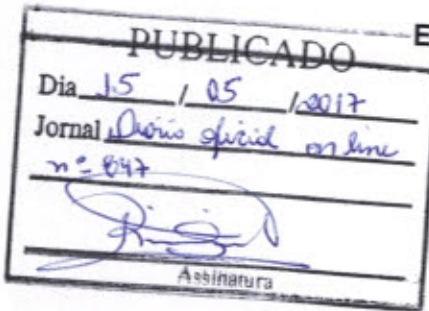 E
PUBLICADO
Dia 15 / 05 / 2017
Jornal Diário oficial on line
nº 847
Assinatura